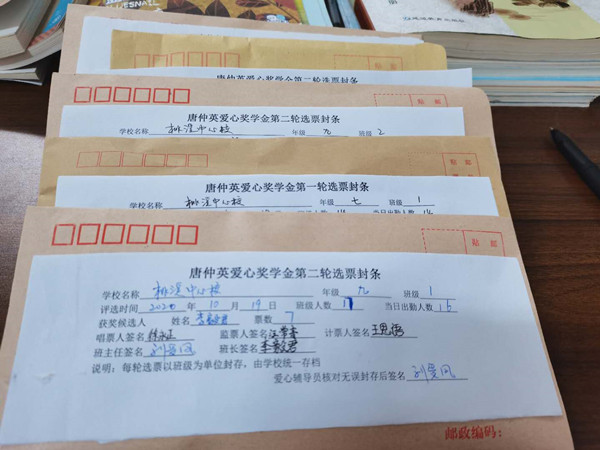 唐仲英爱心奖学金第二轮选票封条
贴 邮
唐仲英爱心奖学金第二轮选票封条
学校名称 桃溪中心校 年级 九 班级 2
唐仲英爱心奖学金第一轮选票封条
学校名称 桃溪中心校 年级 七 班级 1
贴 邮
唐仲英爱心奖学金第二轮选票封条
学校名称 桃溪中心校 年级 九 班级 1
评选时间 2020 年 10 月 19 日 班级人数 当日出勤人数 16
获奖候选人 姓名 票数 7
唱票人签名 监票人签名 计票人签名
班主任签名 班长签名
说明：每轮选票以班级为单位封存，由学校统一存档
爱心辅导员核对无误封存后签名
邮政编码：